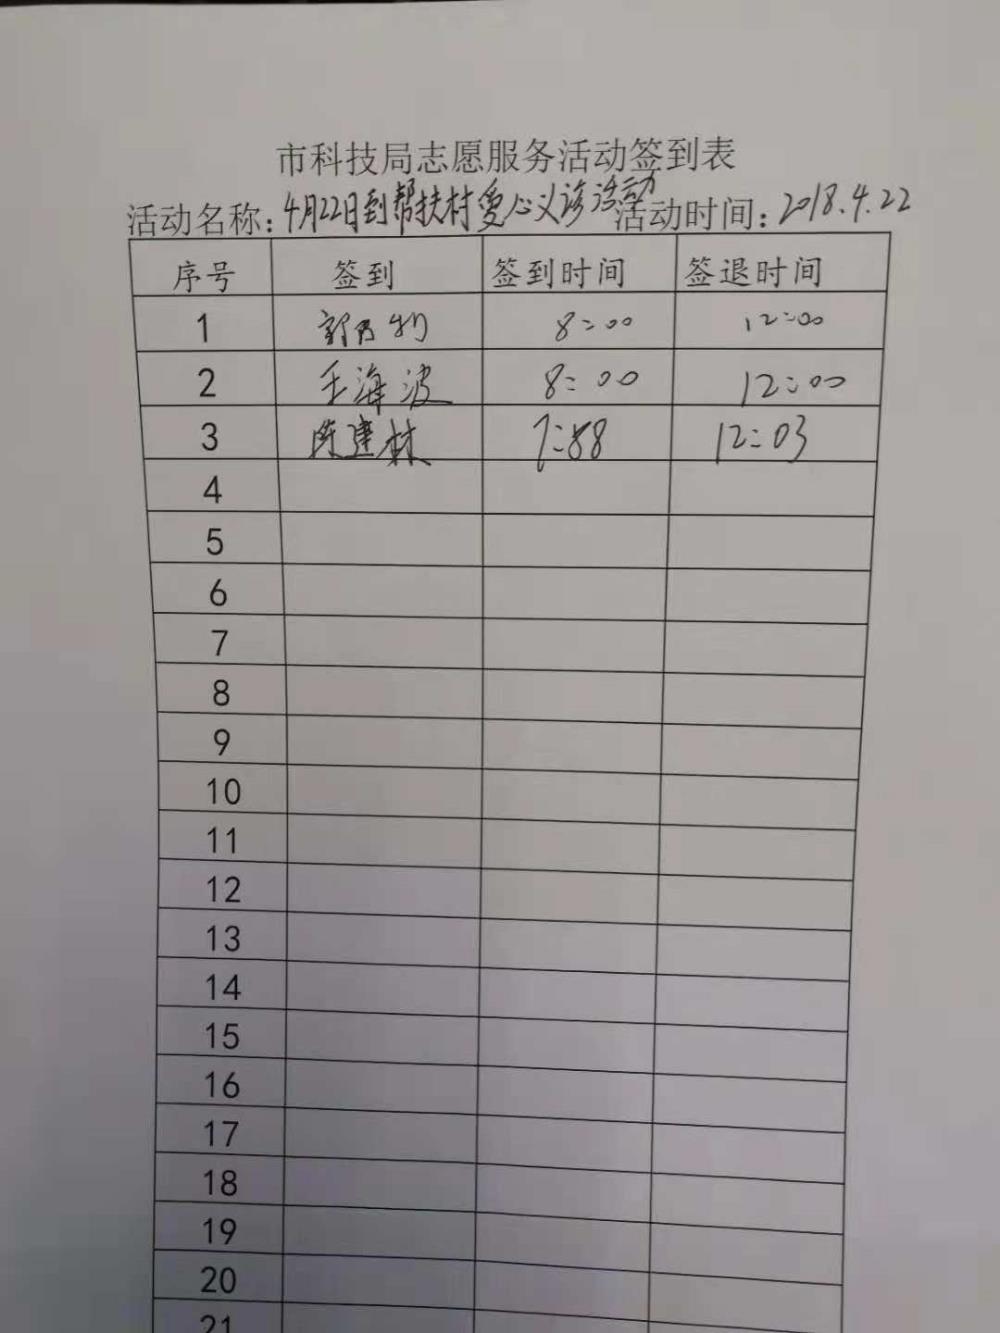 市科技局志愿服务活动签到表
活动名称:4月22日到帮扶村爱心义诊活动 活动时间:2018.4.22
序号 签到 签到时间 签退时间
1 8:00 12:00
2 王海波 8:00 12:00
3 陈建林 7:58 12:03
4
5
6
7
8
9
10
11
12
13
14
15
16
17
18
19
20
21